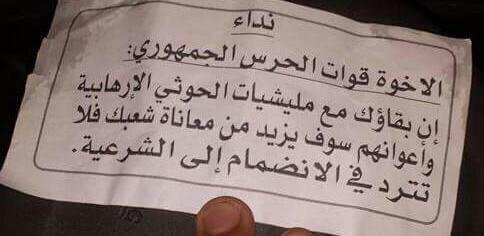 نداء
الاخوة قوات الحرس الجمهوري:
إن بقاؤك مع مليشيات الحوثي الإرهابية
وأعوانهم سوف يزيد من معاناة شعبك فلا
تترد في الانضمام إلى الشرعية.